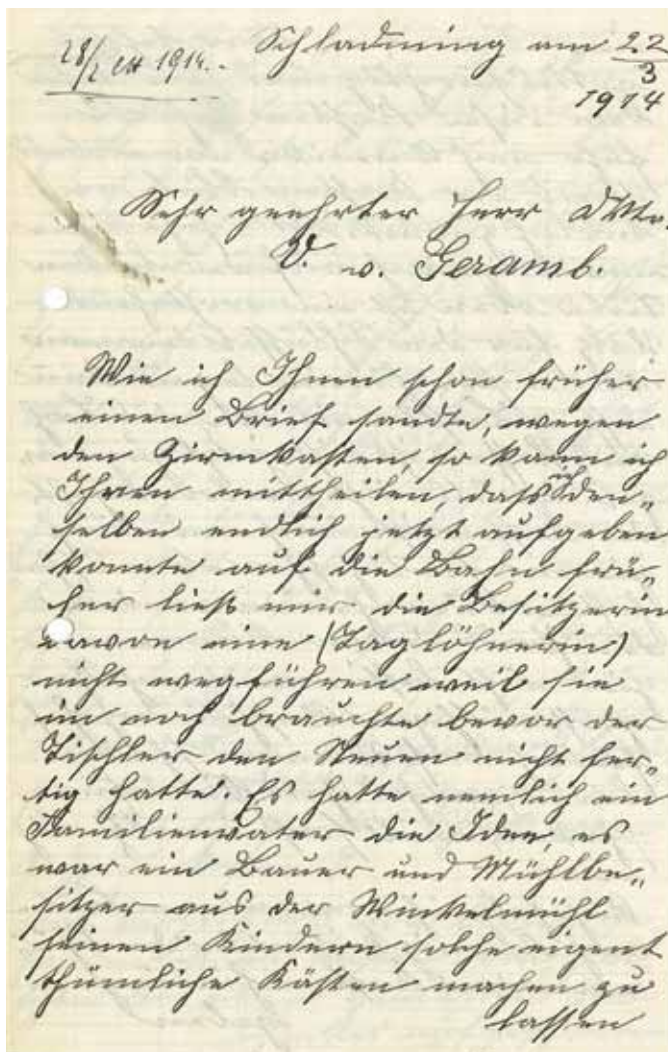 Schladming am 22
3
1914
1914.
Sehr geehrter Herr
V. v. Geramb.
Wie ich Ihnen schon früher
einen Brief sandte, wegen
den Zirmkasten, so kann ich
Ihnen mittheilen, dass ich den„
selben endlich jetzt aufgeben
konnte auf die Bahn frü„
her ließ mir die Besitzerin
davon eine (Taglöhnerin)
nicht wegführen weil sie
im noch brauchte bevor der
Tischler den Neuen nicht fer„
tig hatte. Es hatte nemlich ein
Familienvater die Idee, es
war ein Bauer und Mühlbe„
sitzer aus der Winkelmühl
seinen Kindern solche eigent
thümliche Kästen machen zu
lassen